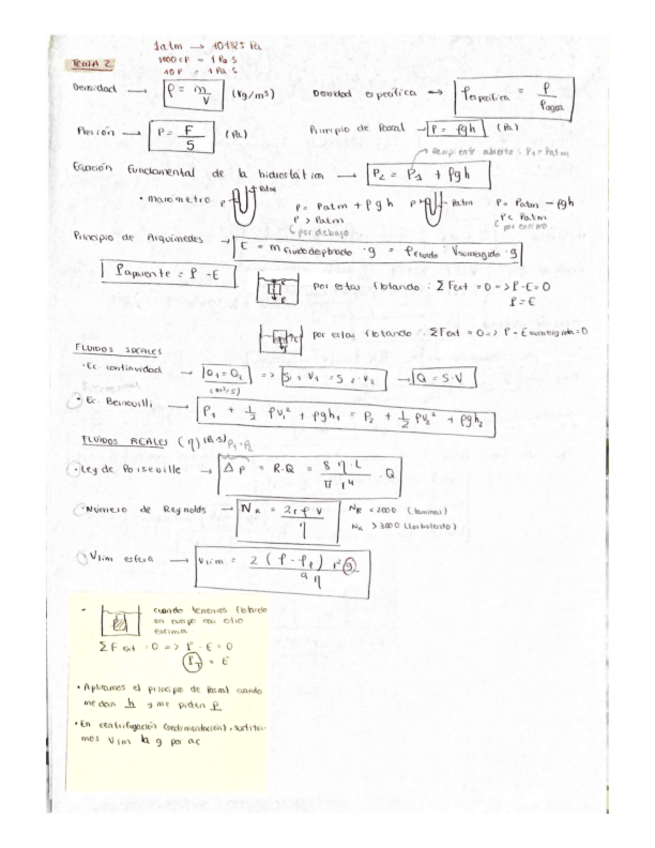 1atm → 101325 Pa
1000 cP = 1 Pa·s
10 P = 1 Pa·s
TEMA 2
Densidad → ρ = m/V (Kg/m³) Densidad específica → ρespecífica = ρ/ρagua
Presión → P = F/S (Pa) Principio de Pascal → P = ρgh (Pa)
Recipiente abierto: P₁ = Patm
Ecuación fundamental de la hidrostática → P₂ = P₁ + ρgh
• manómetro P Patm P = Patm + ρgh P Patm P = Patm - ρgh
P > Patm P < Patm
por debajo por encima
Principio de Arquímedes → E = m fluido desplazado · g = ρfluido · Vsumergido · g
Paparente = P - E
por estar flotando : ΣFext = 0 => P - E = 0
P = E
por estar flotando : ΣFext = 0 => P - Esumergida = 0
FLUIDOS IDEALES
• Ec. continuidad → Q₁ = Q₂ => S₁ · V₁ = S₂ · V₂ → Q = S·V
(m³/s)
• Ec. Bernouilli → P₁ + 1/2 ρv₁² + ρgh₁ = P₂ + 1/2 ρv₂² + ρgh₂
FLUIDOS REALES (η) (Pa·s) P₁-P₂
• Ley de Poiseville → ΔP = R·Q = 8·η·L / π·r⁴ · Q
• Número de Reynolds → NR = 2rρv / η NR < 2000 (laminar)
NR > 3000 (turbulento)
Vlim esfera → Vlim = 2(ρ - ρf) r² g / 9η
- cuando tenemos flotando
un cuerpo con otro
encima
ΣFext = 0 => P - E = 0
PT = E
• Aplicamos el principio de Pascal cuando
me dan h y me piden P
• En centrifugación (sedimentación), sustitui-
mos Vlim la g por ac